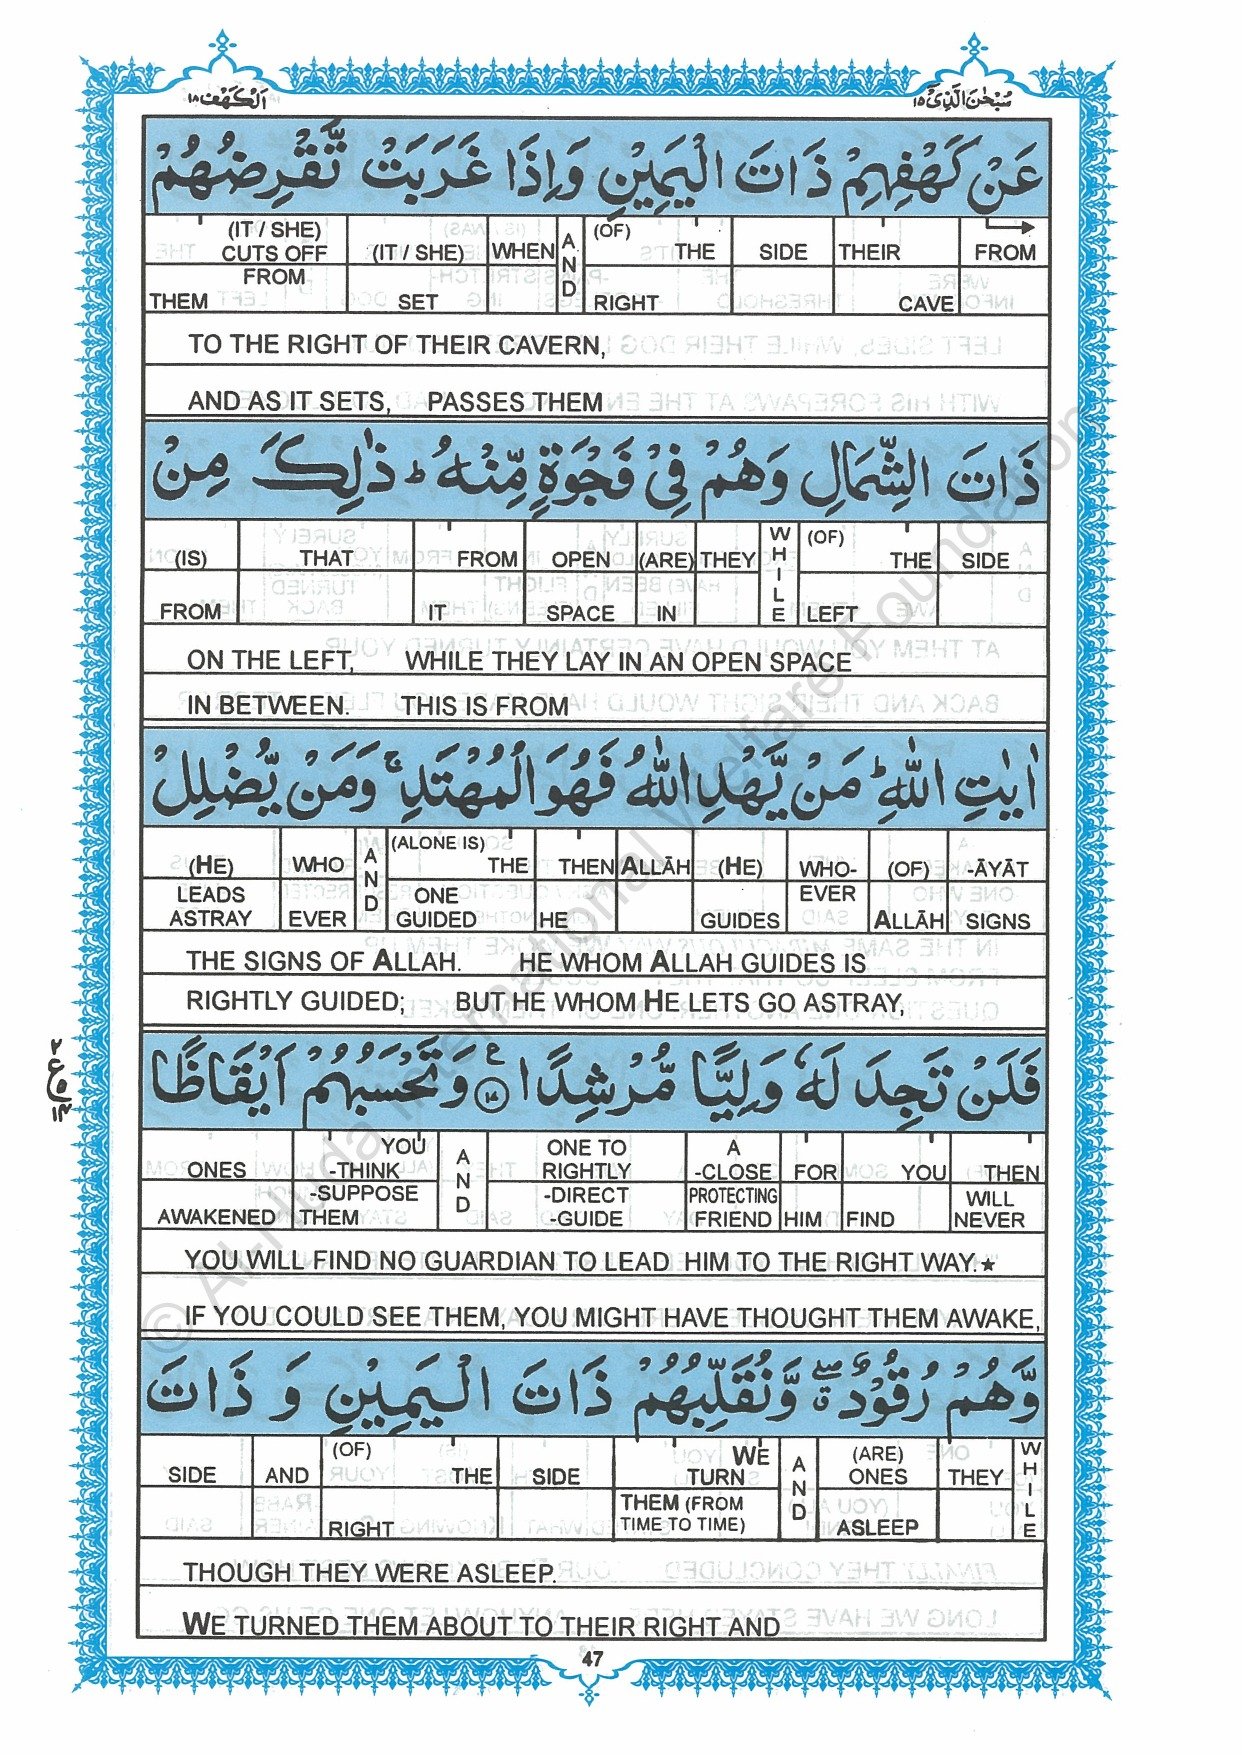 اَلْكَهْف ١٨
سُبْحٰنَ الَّذِيْٓ ١٥
عَنْ كَهْفِهِمْ ذَاتَ الْيَمِيْنِ وَاِذَا غَرَبَتْ تَّقْرِضُهُمْ
(IT / SHE) CUTS OFF (IT / SHE) WHEN AND (OF) THE SIDE THEIR FROM
FROM THEM SET RIGHT CAVE
TO THE RIGHT OF THEIR CAVERN,
AND AS IT SETS, PASSES THEM
ذَاتَ الشِّمَالِ وَهُمْ فِيْ فَجْوَةٍ مِّنْهُ ؕ ذٰلِكَ مِنْ
(IS) THAT FROM OPEN (ARE) THEY WHILE (OF) THE SIDE
FROM IT SPACE IN LEFT
ON THE LEFT, WHILE THEY LAY IN AN OPEN SPACE
IN BETWEEN. THIS IS FROM
اٰيٰتِ اللّٰهِ ؕ مَنْ يَّهْدِ اللّٰهُ فَهُوَ الْمُهْتَدِ ۚ وَمَنْ يُّضْلِلْ
(HE) WHO AND (ALONE IS) THE THEN ALLĀH (HE) WHO- (OF) -ĀYĀT
LEADS ASTRAY EVER ONE GUIDED HE GUIDES EVER ALLĀH SIGNS
THE SIGNS OF ALLAH. HE WHOM ALLAH GUIDES IS
RIGHTLY GUIDED; BUT HE WHOM HE LETS GO ASTRAY,
فَلَنْ تَجِدَ لَهٗ وَلِيًّا مُّرْشِدًا ١٧ ع وَتَحْسَبُهُمْ اَيْقَاظًا
ONES YOU -THINK AND ONE TO RIGHTLY A -CLOSE FOR YOU THEN
AWAKENED -SUPPOSE THEM -DIRECT -GUIDE PROTECTING FRIEND HIM FIND WILL NEVER
YOU WILL FIND NO GUARDIAN TO LEAD HIM TO THE RIGHT WAY.★
IF YOU COULD SEE THEM, YOU MIGHT HAVE THOUGHT THEM AWAKE,
وَّهُمْ رُقُوْدٌ ۖ وَّنُقَلِّبُهُمْ ذَاتَ الْيَمِيْنِ وَ ذَاتَ
SIDE AND (OF) THE SIDE WE TURN AND (ARE) ONES THEY WHILE
RIGHT THEM (FROM TIME TO TIME) ASLEEP
THOUGH THEY WERE ASLEEP.
WE TURNED THEM ABOUT TO THEIR RIGHT AND
47
© Al-Huda International Welfare Foundation